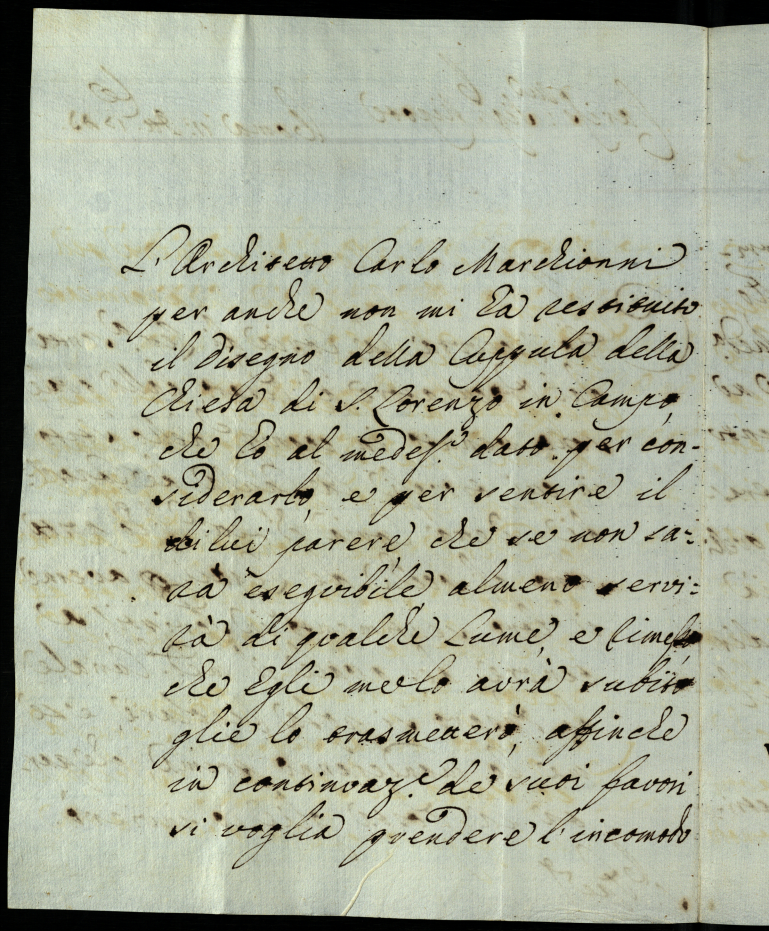 L'Architetto Carlo Marchionni
per anche non mi ha restituito
il disegno della Cuppula della
Chiesa di S. Lorenzo in Campo,
che hò al medes.º dato per con-
siderarlo, e per sentire il
di lui parere che se non sa-
rà eseguibile almeno servi-
rà di qualche Lume, e
che Egli me lo avrà subito
glie lo trasmetterò, affinche
in continvaz.e de suoi favori
si voglia prendere l'incomodo